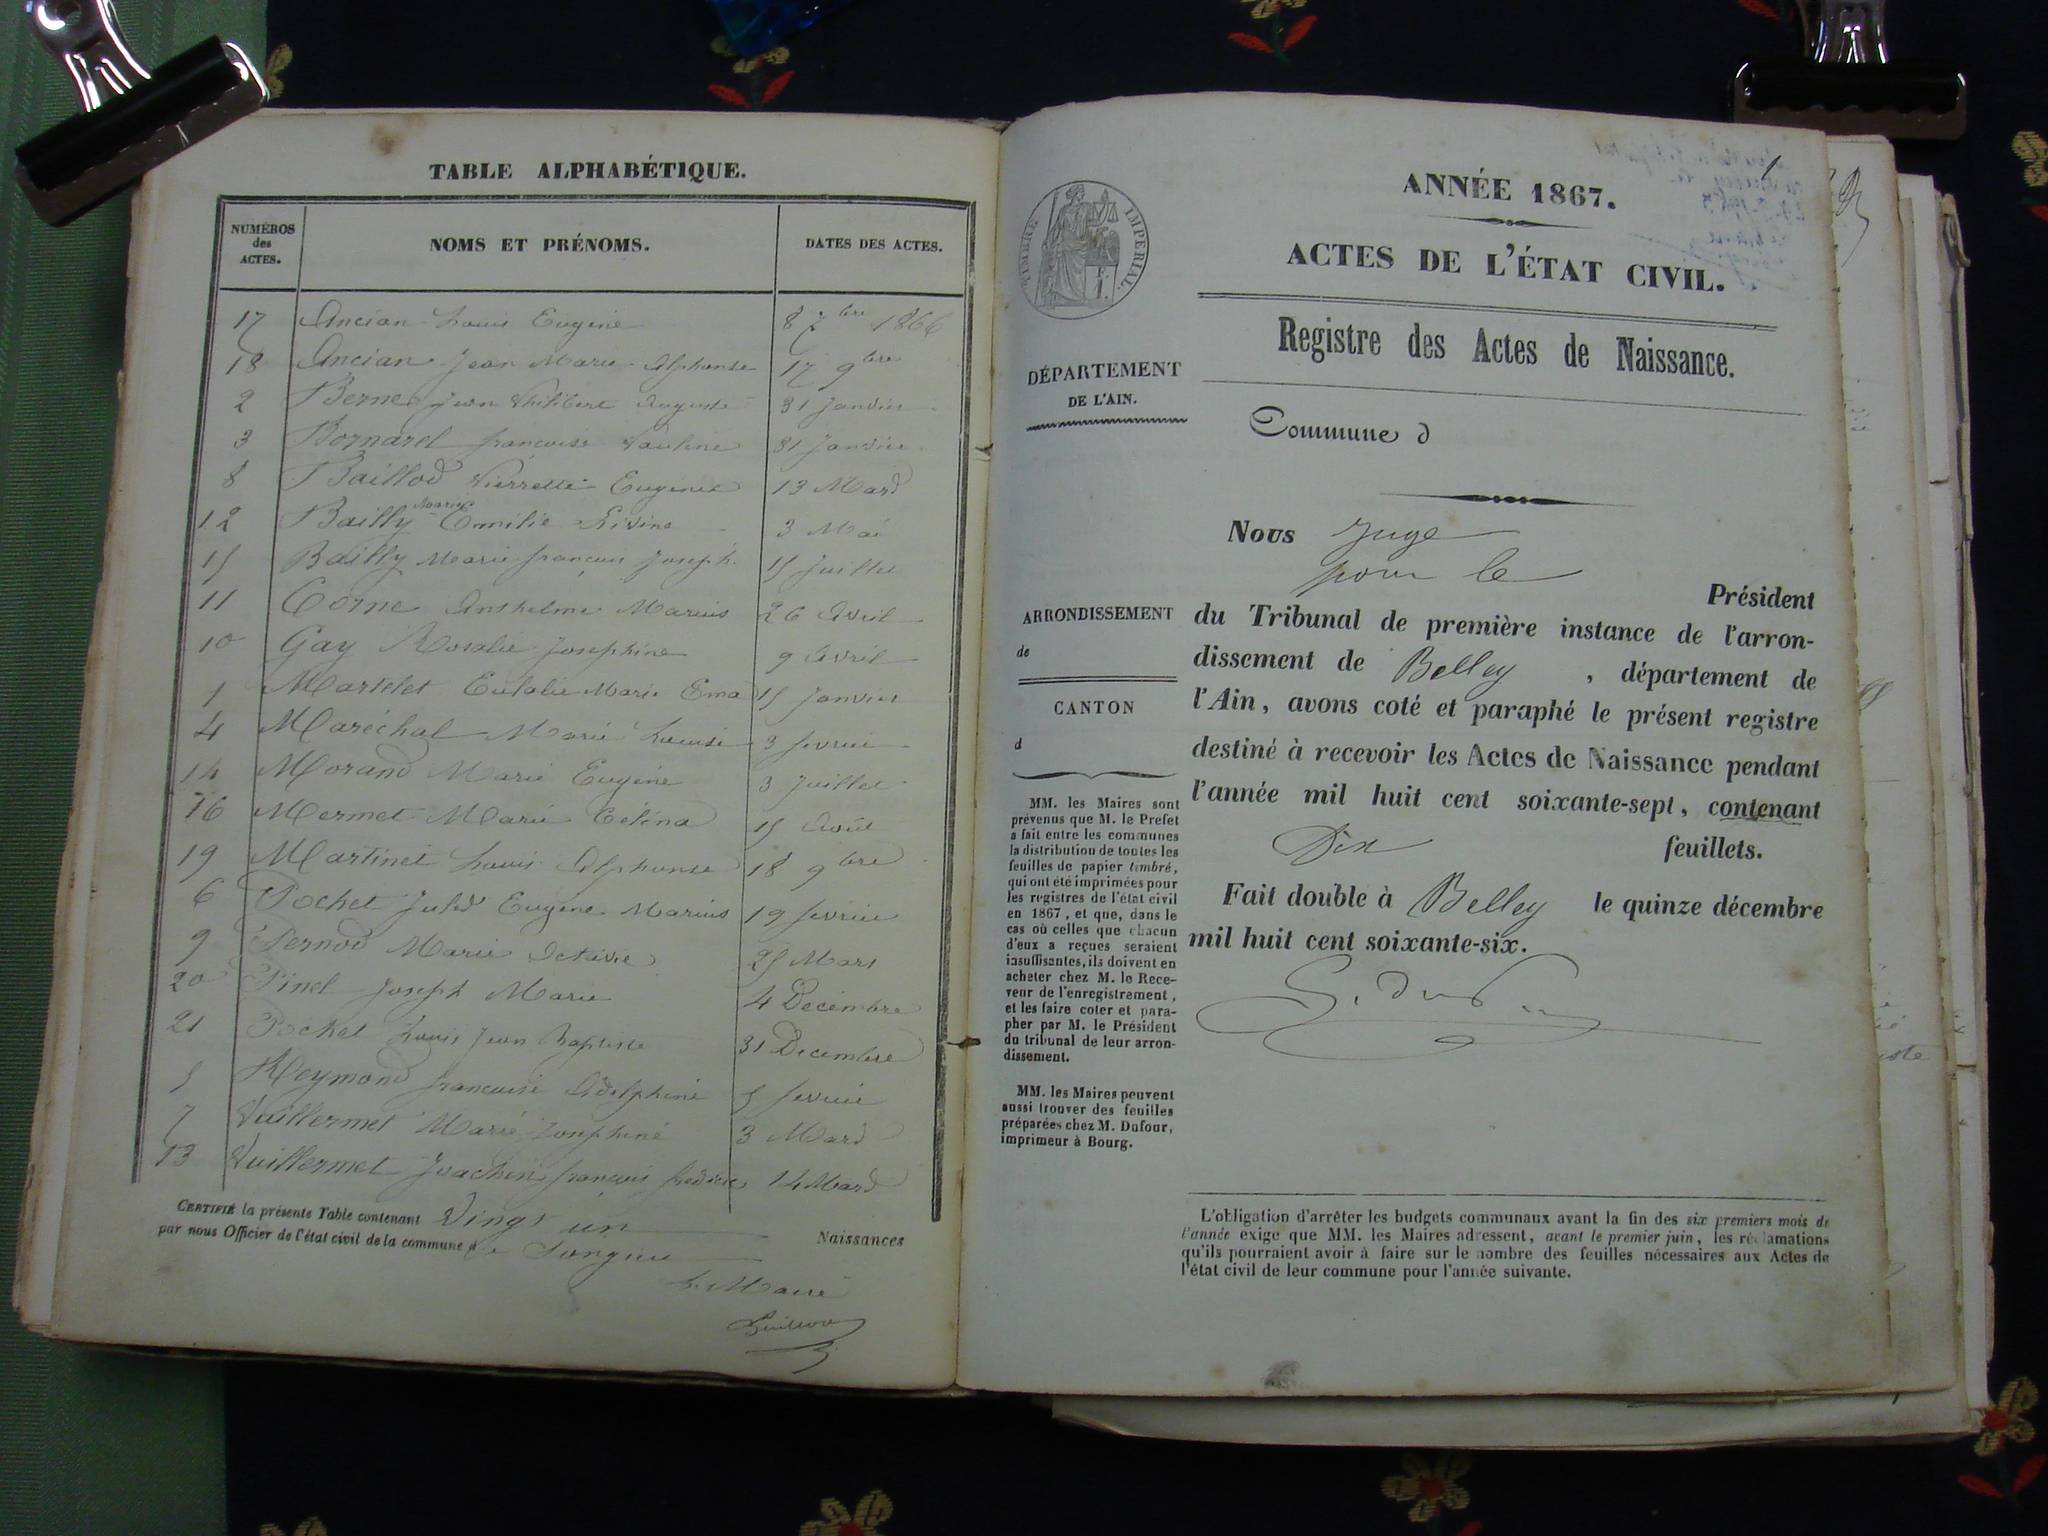 TABLE ALPHABÉTIQUE.
NUMÉROS des ACTES. NOMS ET PRÉNOMS. DATES DES ACTES.
17 Ancian Louis Eugène 8 7bre 1866
18 Ancian Jean Marie Alphonse 17 9bre
2 Berne Jean Philibert Auguste 31 Janvier
3 Bornarel françoise Pauline 31 Janvier
8 Baillod Pierrette Eugénie 13 Mars
12 Bailly Marie Emilie 3 Mai
15 Bailly Marie françois Joseph 15 Juillet
11 Corne Anthelme Marius 26 Avril
10 Gay Rosalie Josephine 9 Avril
1 Martelet Eulalie Marie Ema 15 Janvier
4 Maréchal Marie Louise 3 fevrier
14 Morand Marie Eugène 3 Juillet
16 Mermet Marie Céléna 15 Août
19 Martinet Louis Alphonse 18 9bre
6 Pochet Jules Eugène Marius 19 fevrier
9 Pernod Marie Octavie 25 Mars
20 Pinel Joseph Marie 4 Decembre
21 Pochet Louis Jean Baptiste 31 Decembre
5 Reymond françoise Delphine 5 fevrier
7 Vuillermet Marie Josephine 3 Mars
13 Vuillermet Joachin françois frederic 14 Mars
CERTIFIÉ la présente Table contenant Vingt un Naissances
par nous Officier de l'état civil de la commune de Songieu
Le Maire
1
ANNÉE 1867.
ACTES DE L'ÉTAT CIVIL.
TIMBRE IMPERIAL.
Registre des Actes de Naissance.
DÉPARTEMENT
DE L'AIN.
Commune d
Nous Juge
pour le
Président
du Tribunal de première instance de l'arron-
dissement de Belley , département de
l'Ain, avons coté et paraphé le présent registre
destiné à recevoir les Actes de Naissance pendant
l'année mil huit cent soixante-sept, contenant
Dix feuillets.
Fait double à Belley le quinze décembre
mil huit cent soixante-six.
ARRONDISSEMENT
de
CANTON
d
MM. les Maires sont
prévenus que M. le Prefet
a fait entre les communes
la distribution de toutes les
feuilles de papier timbré,
qui ont été imprimées pour
les registres de l'état civil
en 1867, et que, dans le
cas où celles que chacun
d'eux a reçues seraient
insuffisantes, ils doivent en
acheter chez M. le Rece-
veur de l'enregistrement,
et les faire coter et para-
pher par M. le Président
du tribunal de leur arron-
dissement.
MM. les Maires peuvent
aussi trouver des feuilles
préparées chez M. Dufour,
imprimeur à Bourg.
L'obligation d'arrêter les budgets communaux avant la fin des six premiers mois de
l'année exige que MM. les Maires adressent, avant le premier juin, les réclamations
qu'ils pourraient avoir à faire sur le nombre des feuilles nécessaires aux Actes de
l'état civil de leur commune pour l'année suivante.